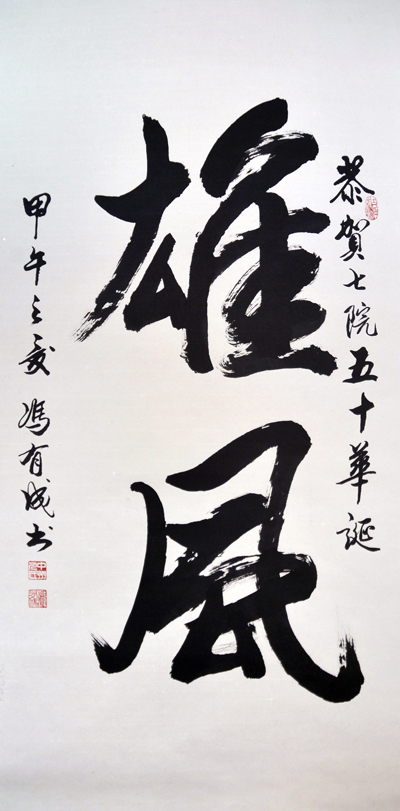 恭賀七院五十華誕
雄風
甲午之夏馮有成書